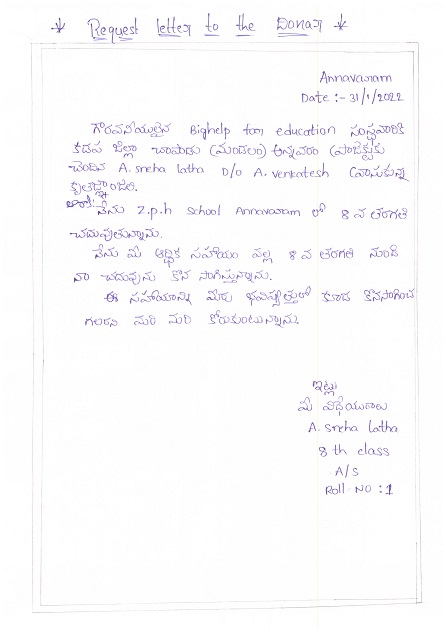 Request letter to the Donar
Annavaram
Date :- 31/1/2022
గౌరవనీయులైన Bighelp for education సంస్థవారికి
కడప జిల్లా చాపాడు (మండలం) అన్నవరం ప్రాజెక్టుకు
చెందిన A. sneha latha D/o A. venkatesh వ్రాసుకున్న
కృతజ్ఞాంజలి.
నేను Z.p.h school Annavaram లో 8 వ తరగతి
చదువుతున్నాను.
నేను మీ ఆర్థిక సహాయం వల్ల 8 వ తరగతి నుండి
నా చదువును కొన సాగిస్తున్నాను.
ఈ సహాయాన్ని మీరు భవిష్యత్తులో కూడ కొనసాగించ
గలరని మరి మరి కోరుకుంటున్నాను.
ఇట్లు
మీ విధేయురాలు
A. sneha latha
8 th class
A/s
Roll NO : 1